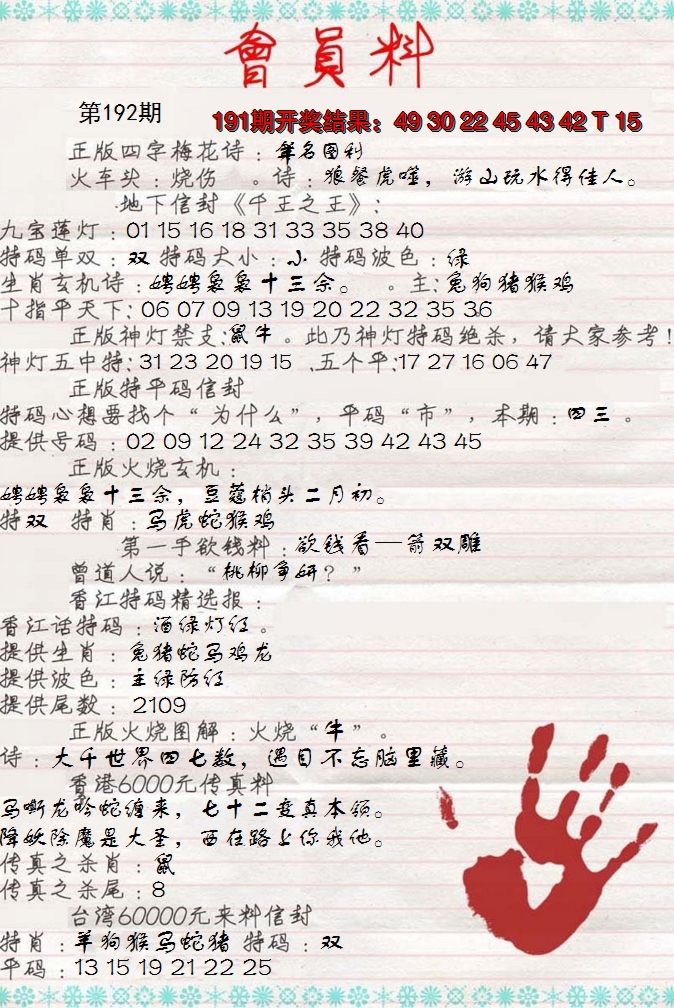 會員料
第192期
191期开奖结果：49 30 22 45 43 42 T 15
正版四字梅花诗：筆名图利
火车头：烧伤 。诗：狼餐虎噬，游山玩水得佳人。
地下信封《千王之王》：
九宝莲灯：01 15 16 18 31 33 35 38 40
特码单双：双 特码大小：小 特码波色：绿
生肖玄机诗：娉娉袅袅十三余。 。主：兔狗猪猴鸡
十指平天下：06 07 09 13 19 20 22 32 35 36
正版神灯禁支：鼠牛。此乃神灯特码绝杀，请大家参考！
神灯五中特：31 23 20 19 15 、五个平：17 27 16 06 47
正版特平码信封
特码心想要找个“为什么”，平码“市”，本期：四三。
提供号码：02 09 12 24 32 35 39 42 43 45
正版火烧玄机：
娉娉袅袅十三余，豆蔻梢头二月初。
特双 特肖：马虎蛇猴鸡
第一手欲钱料：欲钱看一箭双雕
曾道人说：“桃柳争妍？”
香江特码精选报：
香江话特码：酒绿灯红。
提供生肖：兔猪蛇马鸡龙
提供波色：主绿防红
提供尾数：2109
正版火烧图解：火烧“牛”。
诗：大千世界四七数，遇目不忘脑里藏。
香港6000元传真料
马嘶龙吟蛇缠来，七十二变真本领。
降妖除魔是大圣，西在路上你我他。
传真之杀肖：鼠
传真之杀尾：8
台湾60000元来料信封
特肖：羊狗猴马蛇猪 特码：双
平码：13 15 19 21 22 25